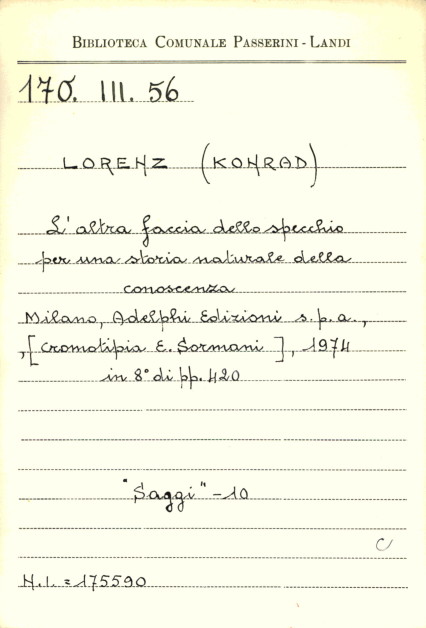 BIBLIOTECA COMUNALE PASSERINI - LANDI
170. III. 56
LORENZ (KONRAD)
L'altra faccia dello specchio
per una storia naturale della
conoscenza
Milano, Adelphi Edizioni s.p.a.,
,[cromotipia E. Sormani], 1974
in 8° di pp. 420
"Saggi" - 10
C
N.I. = 175590